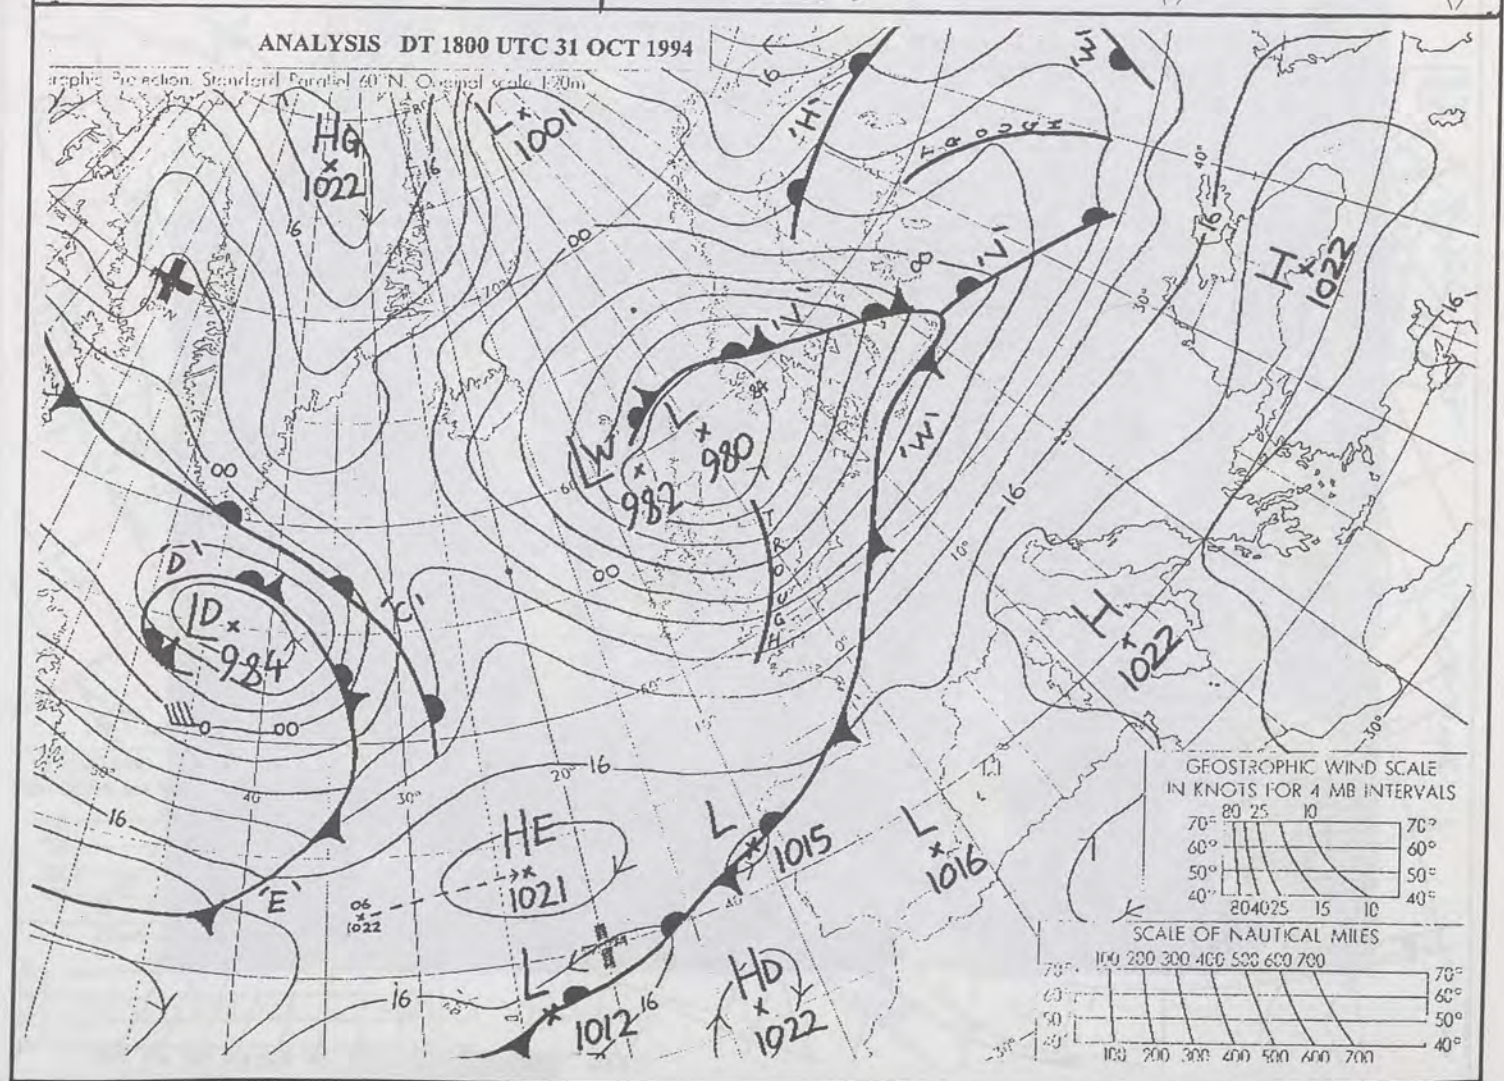 ANALYSIS DT 1800 UTC 31 OCT 1994
Projection. Standard Parallel 60°N. Original scale 1:20m
HG
1022
L
1001
16
'H'
'W'
TROUGH
40°
16
H
1022
16
16
16
00
70°
00
'V'
'V'
30°
L
980
84
LW
982
'W'
00
16
10°
TROUGH
00
'D'
LD
984
'C'
0
00
0°
H
1022
30°
40
30°
20°
16
16
HE
1021
06
1022
'E'
L
1015
L
1016
L
1012
16
16
HD
1022
GEOSTROPHIC WIND SCALE
IN KNOTS FOR 4 MB INTERVALS
80 25 10
70° 70°
60° 60°
50° 50°
40° 40°
80 40 25 15 10
SCALE OF NAUTICAL MILES
100 200 300 400 500 600 700
70° 70°
60° 60°
50° 50°
40° 40°
100 200 300 400 500 600 700